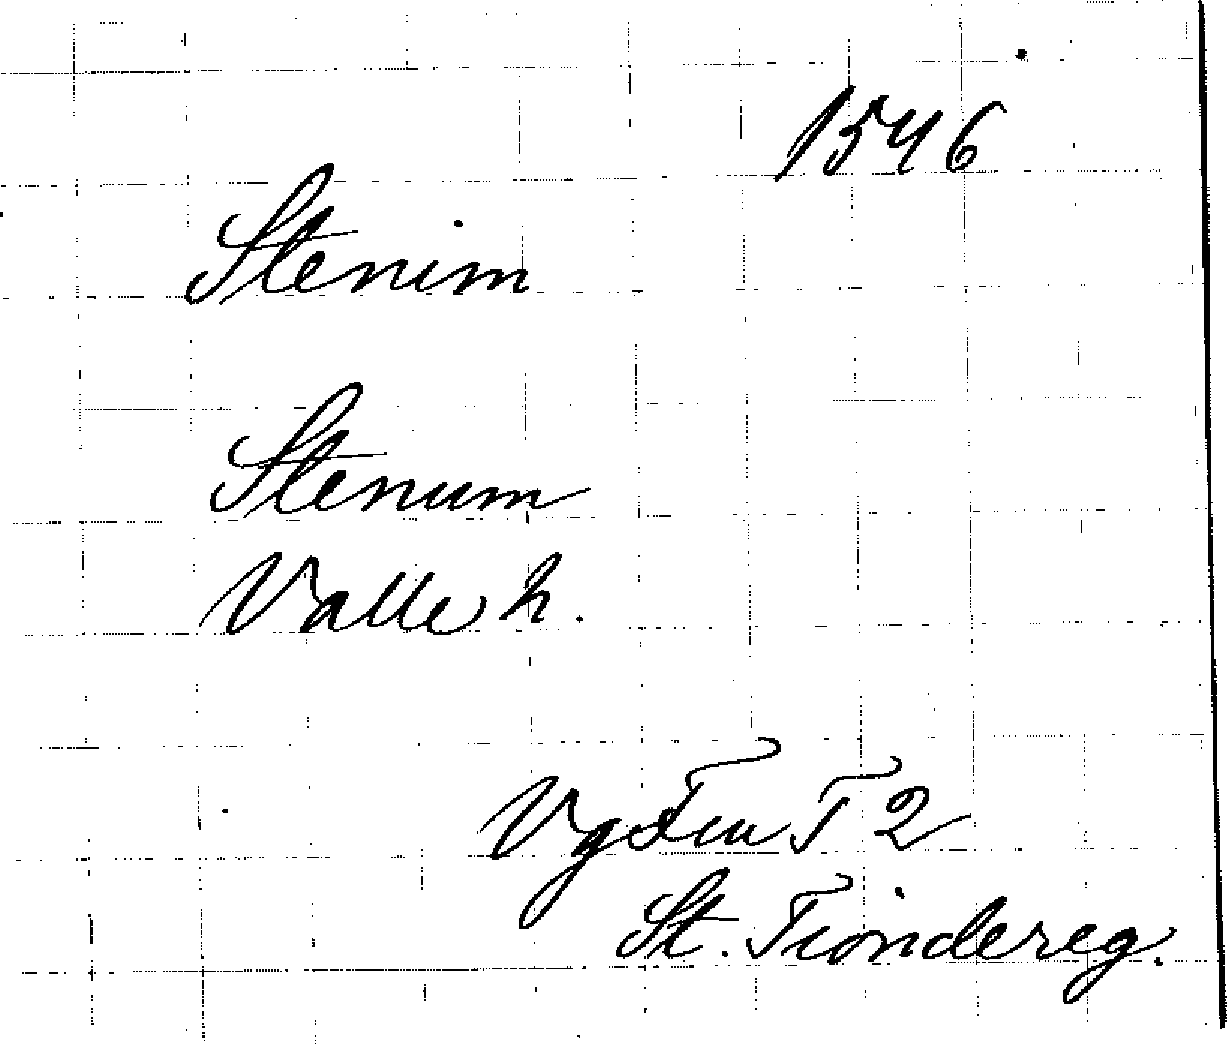 1546
Stenim
Stenum
Valle h.
Vg Fu T 2
St. Tiondereg.